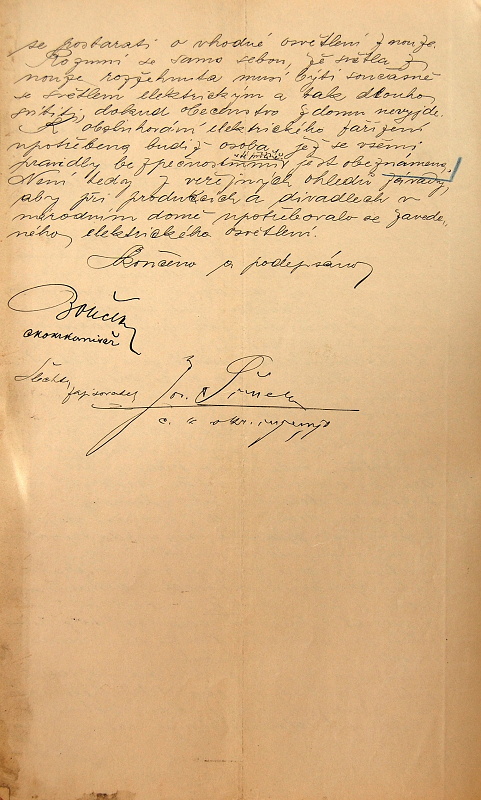 se postarati o vhodné osvětlení z nouze.
Rozumí se samo sebou, že světla z
nouze rozžehnuta musí býti současně
se světlem elektrickým a tak dlouho
svítiti, dokud obecenstvo z domu nevyjde.
K obsluhování elektrického zařízení
upotřebena budiž osoba, jež se všemi
pravidly bezpečnostními jest obeznámena,
Není tedy z veřejných ohledů závady,
aby při produkcích a divadlech v
národním domě upotřebovalo se zavede-
ného elektrického osvětlení.
Skončeno a podepsáno
zapisovatel
Jos.
c. k. okr.